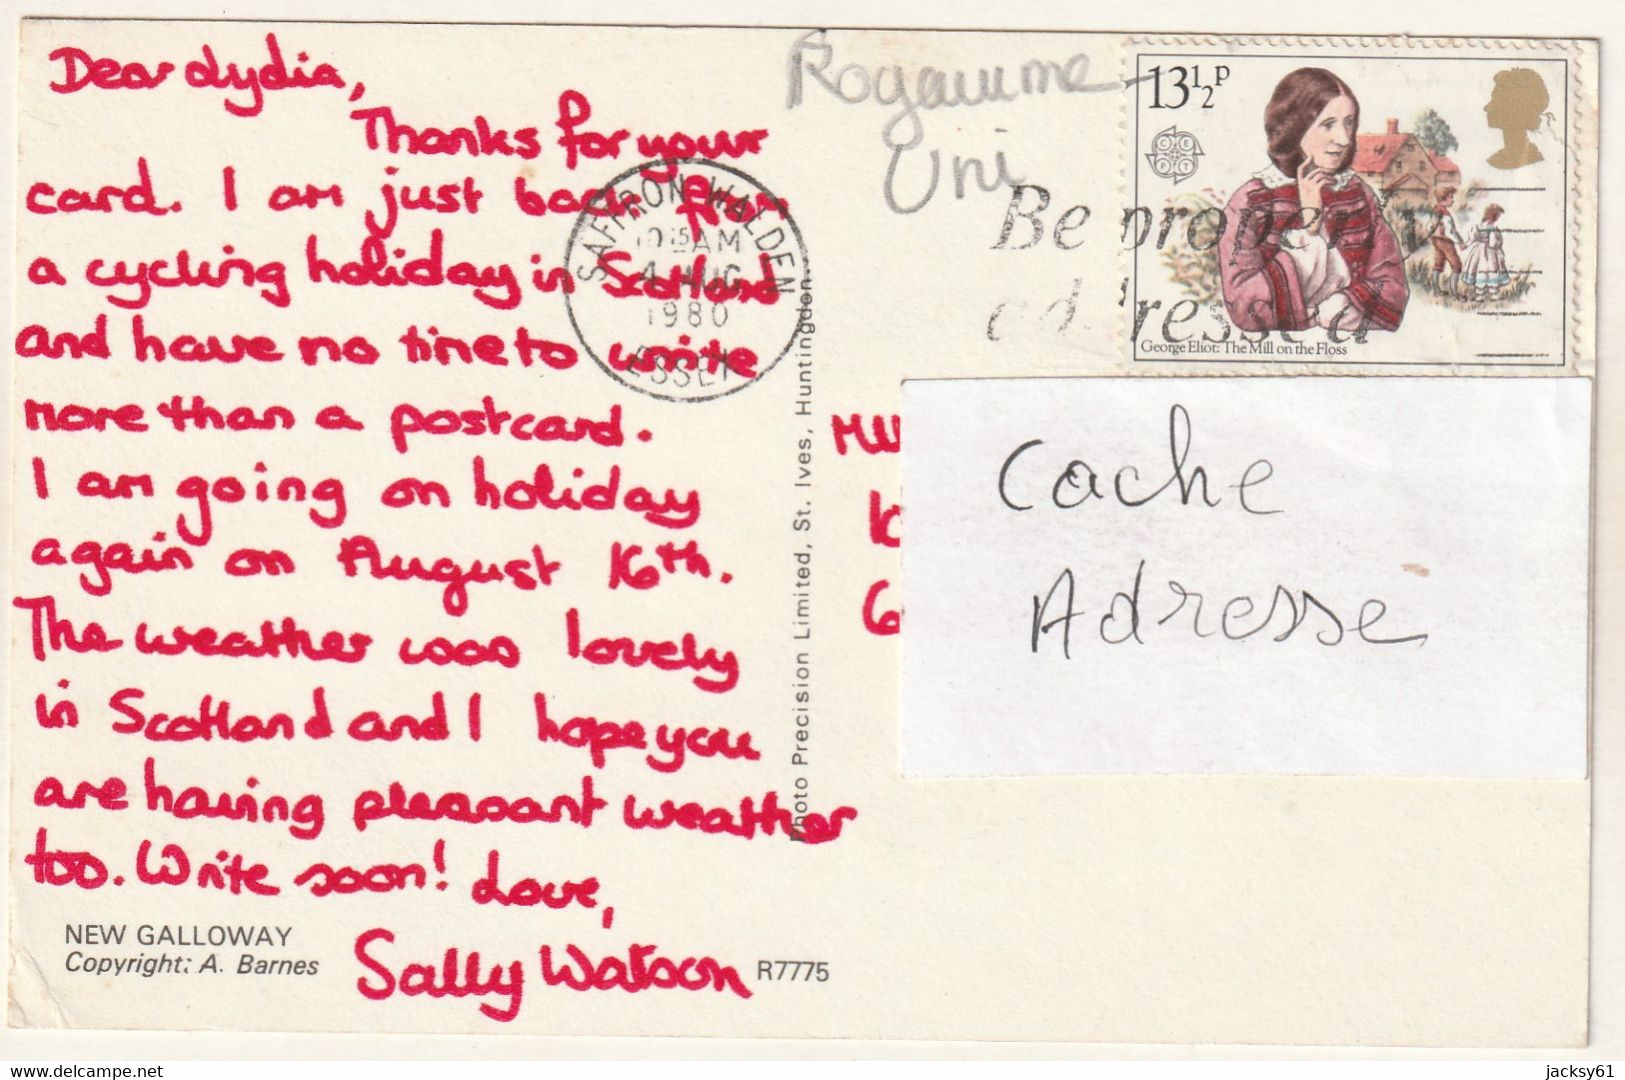 Dear Lydia,
Thanks for your
card. I am just back from
a cycling holiday in Scotland
and have no time to write
more than a postcard.
I am going on holiday
again on August 16th.
The weather was lovely
in Scotland and I hope you
are having pleasant weather
too. Write soon! Love,
Sally Watson
NEW GALLOWAY
Copyright: A. Barnes
R7775
Photo Precision Limited, St. Ives, Huntingdon.
SAFFRON WALDEN
10 15 AM
4 AUG
1980
ESSEX
Royaume
Uni
Be properly
addressed
13½p
CEPT
George Eliot: The Mill on the Floss
Cache
Adresse
jacksy61